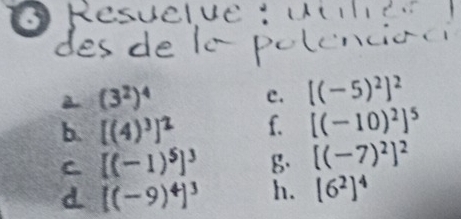 6 Resuelve: utiliza
des de la potenciaci
a. (3²)⁴
b. [(4)³]²
c. [(−1)⁵]³
d. [(−9)⁴]³
e. [(−5)²]²
f. [(−10)²]⁵
g. [(−7)²]²
h. [6²]⁴